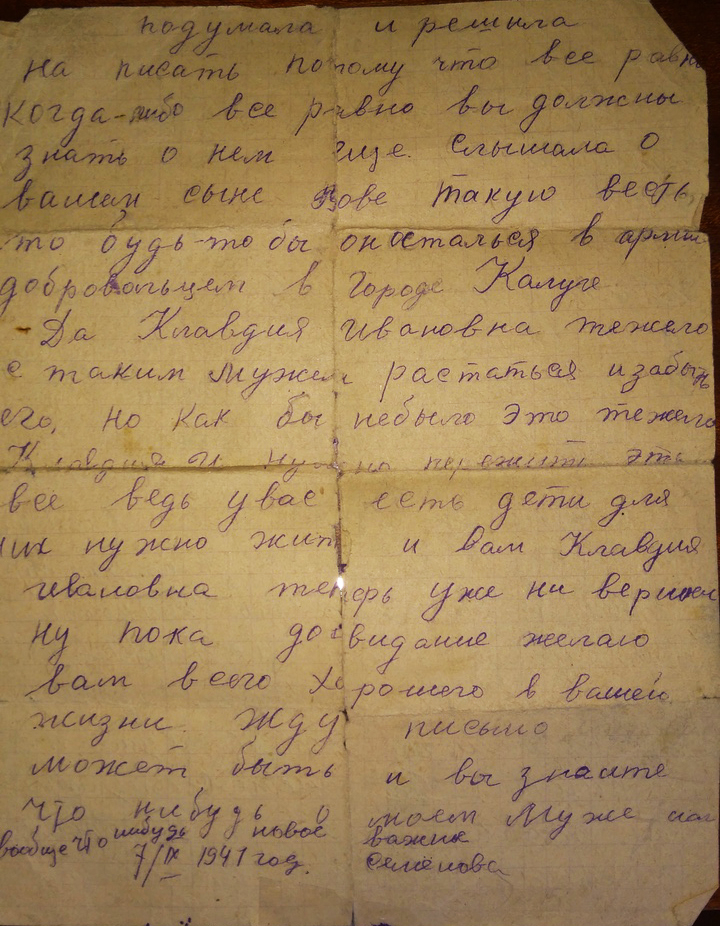 подумала и решыла
на писать потому что все равно
когда-либо все равно вы должны
знать о нем еще. слышала о
вашем сыне Вове такую весть
что будь-то бы оносталься в армии
добровольцем в городе Калуге
Да Клавдия Ивановна тежело
с таким мужем растаться изабыть
его, но как бы небыло это тежело
Клавдия И нужно пережить это
все ведь увас есть дети для
них нужно жить и вам Клавдия
Ивановна теперь уже ни вернеш
ну пока до свидание желаю
вам всего хорошего в вашей
жизни. жду письмо
может быть и вы знаите
что нибудь о моем муже
вообще что нибудь новое
7/IX 1941 год. Семёнова